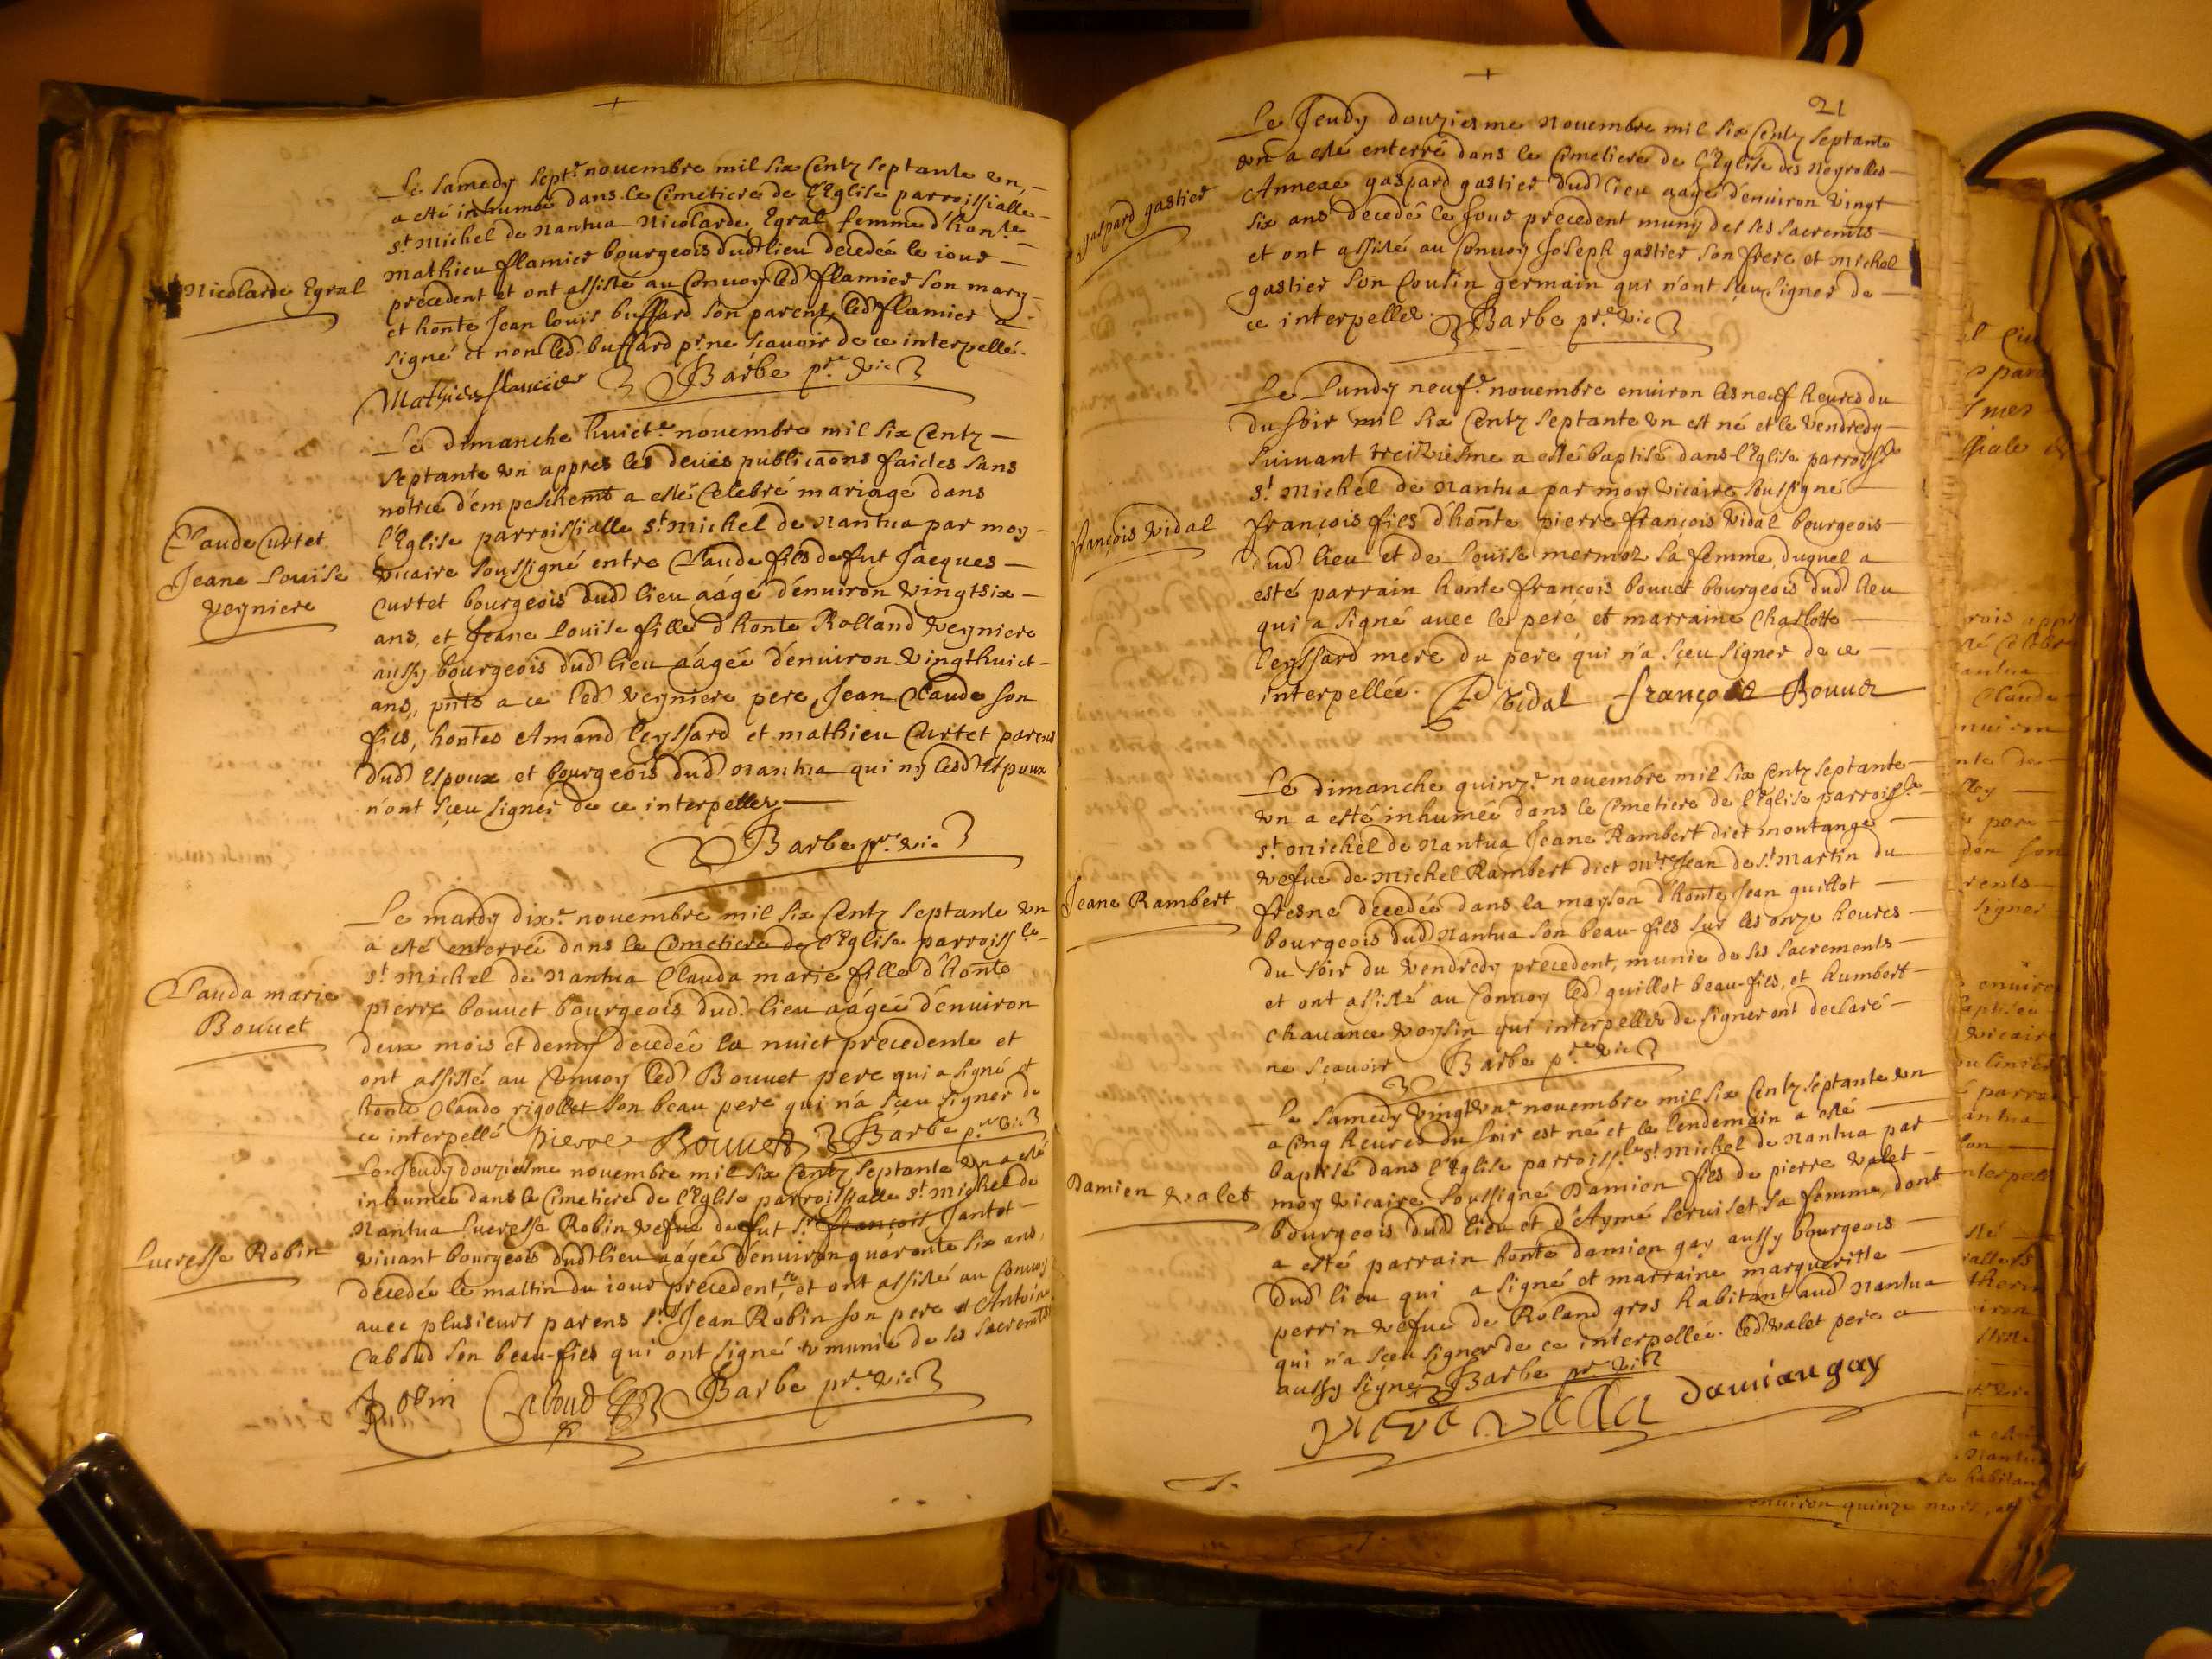 Le samedy sept.e novembre mil six Centz septante un,
a esté inhumée dans le Cimetiere de l'Eglise parroissialle
st Michel de Nantua Nicolarde Egral femme d'hon.te
Nicolarde Egral
Mathieu flamier bourgeois dud lieu decedée le iour
precedent et ont assisté au Convoy led flamier son mary
et honte Jean louis buffard son parent, led flamier a
signé et non led. buffard p.r ne scauoir de ce interpellé.
Mathieu flamier Barbe pr.e vic
Le dimanche huict.e novembre mil six Centz
septante un appres les deües publicaons faictes sans
notice d'empeschemt a esté Celebré mariage dans
l'Eglise parroissialle st Michel de Nantua par moy
Claude Curtet
Jeane Louise
veyniere
vicaire soussigné entre Claude fils de fut Jacques
Curtet bourgeois dud lieu aagé d'enuiron vingtsix
ans, et Jeane Louise fille d'honte Rolland veyniere
aussy bourgeois dud lieu aagée d'enuiron vingthuict
ans, pnts a ce led veyniere pere, Jean Claude son
fils, hontes Amand leyssard et mathieu Curtet parens
dud Espoux et bourgeois dud Nantua qui ny lesd Espoux
n'ont sçeu signer de ce interpellez
Barbe pr.e vic
Le mardy dix.e novembre mil six Centz septante un
a esté enterrée dans le Cimetiere de l'Eglise parroiss.le
st Michel de Nantua Clauda marie fille d'honte
Clauda marie
Bouuet
pierre bouuet bourgeois dud. lieu aágée d'enuiron
deux mois et demy decedée la nuict precedente et
ont assisté au Convoy led Bouuet pere qui a signé et
honte Claude rigollet son beau pere qui n'a sceu signer de
ce interpellé pierre Bouuet Barbe pr.e vic
Le Jeudy douziesme novembre mil six Centz septante un a esté
inhumée dans le Cimetiere de l'Eglise parroissialle st Michel de
Nantua Lucresse Robin vefue de fut sr françois Jantet
Lucresse Robin
viuant bourgeois dud lieu aágée d'enuiron quarante six ans,
decedée le mattin du iour precedent, et ont assisté au Convoy
auec plusieurs parens sr Jean Robin son pere et Antoine
Caboud son beau-fils qui ont signé munie de ses sacremts
Robin Caboud Barbe pr.e vic
21
Le Jeudy douziesme Nouembre mil six Centz septante
un a esté enterré dans le Cimetiere de l'Eglise des Neyrolles
gaspard gastier
Annexe gaspard gastier dud lieu aagé d'enuiron vingt
six ans decedé le Jour precedent muny de ses sacremts
et ont assisté au Convoy Joseph gastier son frere et Michel
gastier son Cousin germain qui n'ont sçeu signer de
ce interpellez. Barbe pr.e vic
Le Lundy neuf.e novembre enuiron les neuf heures du
du soir mil six Centz septante un est né et le vendredy
suiuant treiziesme a esté baptisé dans l'Eglise parroiss.le
st Michel de Nantua par moy vicaire soussigné
françois vidal
françois fils d'honte pierre françois vidal bourgeois
dud lieu et de Louise mermoz sa femme, duquel a
esté parrain honte françois bouuet bourgeois dud lieu
qui a signé auec le peré et marraine Charlotte
leyssard mere du pere qui n'a sceu signer de ce
interpellée. vidal françois Bouuer
Le dimanche quinz.e novembre mil six Centz septante
un a esté inhumée dans le Cimetiere de l'Eglise parroiss.le
st Michel de Nantua Jeane Rambert dict montange
vefue de Michel Rambert dict Mre Jean de st Martin du
Jeane Rambert
fresne decedée dans la mayson d'honte Jean guillot
bourgeois dud Nantua son beau-fils sur les onze heures
du soir du vendredy precedent, munie de ses sacrements
et ont assisté au Convoy led guillot beau-fils, et humbert
chauance voysin qui interpellez de signer ont declaré
ne sçauoir Barbe pr.e vic
Le Samedy vingtun.e novembre mil six Centz septante un
a Cinq heures du soir est né et le lendemain a esté
baptisé dans l'Eglise parroiss.le st Michel de Nantua par
Damien valet
moy vicaire soussigné Damien fils de pierre valet
bourgeois dud lieu et d'Aymé seruiset sa femme, dont
a esté parrain honte damien gay aussy bourgeois
dud lieu qui a signé et marraine margueritte
perrin vefue de Roland gros habitant aud Nantua
qui n'a sceu signer de ce interpellée. led valet pere a
aussy signé Barbe pr.e vic
damian gay